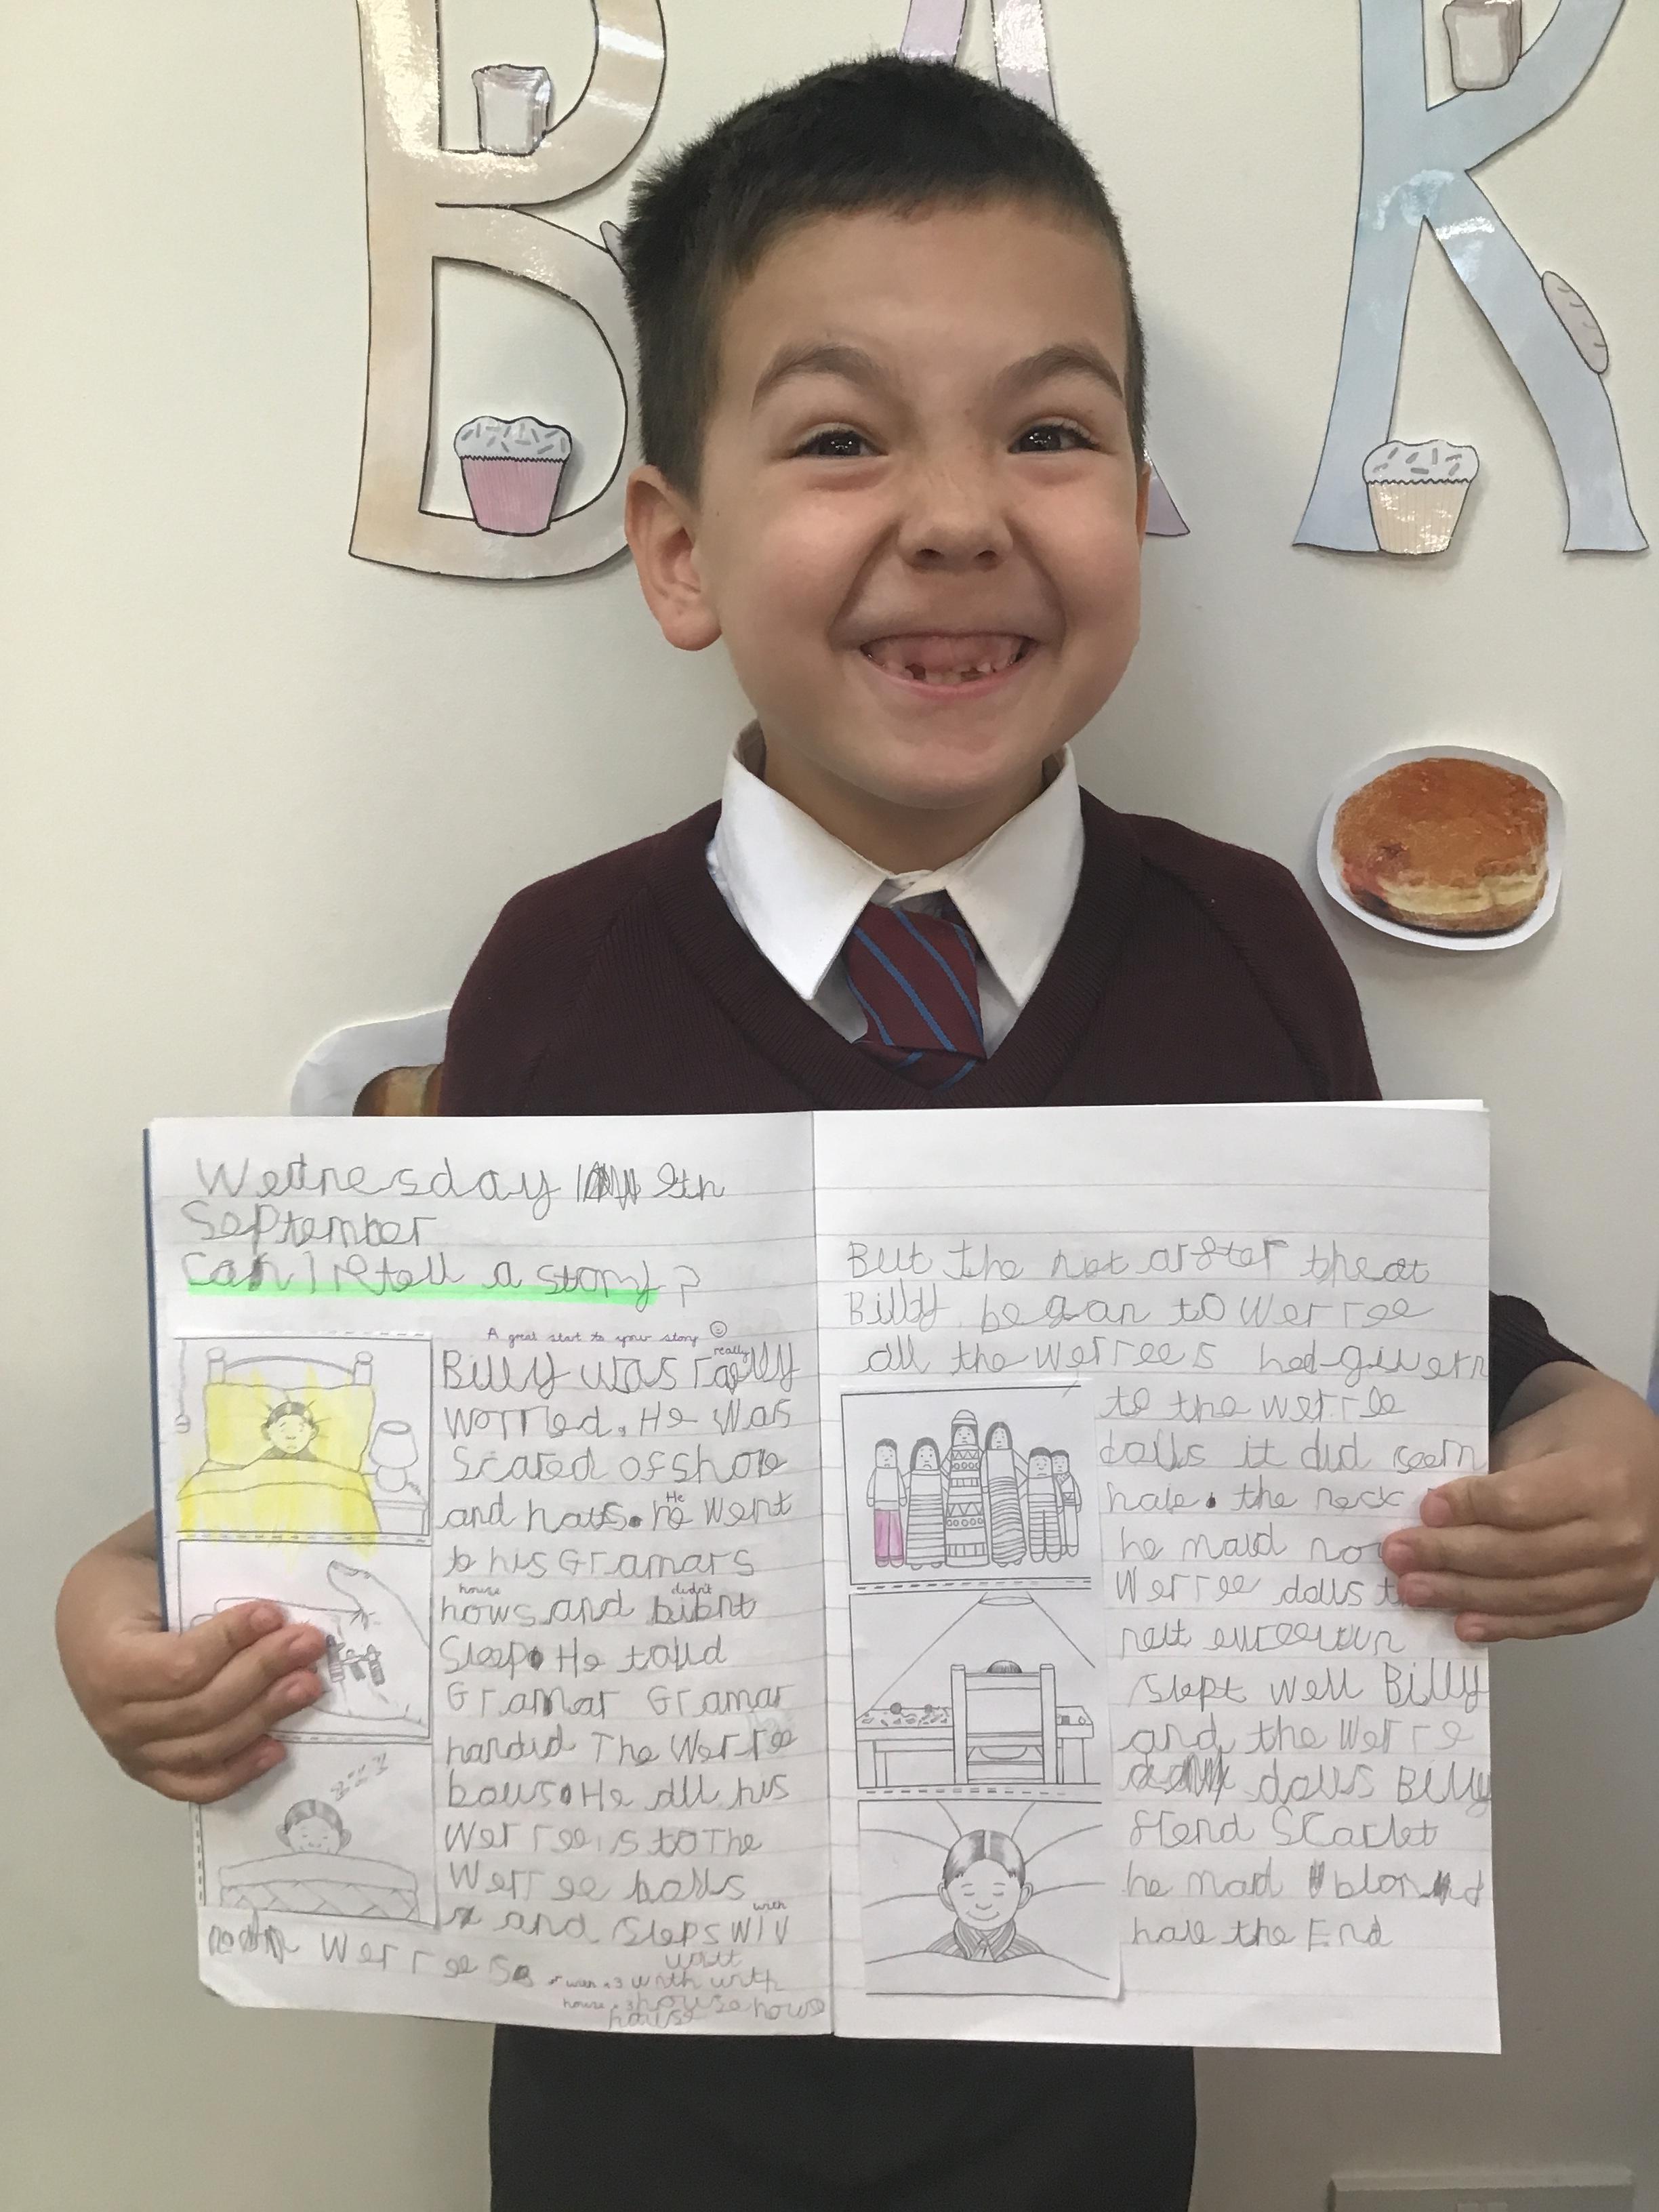 B A K
Wednesday 9th
September
Can I retell a story?
A great start to your story
really
Billy was
worried. He was
Scared of
and hats. he went
He
to his Gramars
house didn't
hows and bibnt
Sleep. He tolld
Gramar Gramar
handid The Werree
He all his
Werree is to The
Werree
with
and Sleps wiv
Werree
with x3 with with
house x3 house
house
zzz
But the net arfter theat
Billy began to Werree
all the Werrees had givern
to the werree
dolls it did seem
the neck
he maid
Werree dolls
nett
slept well Billy
and the Werre
dolls Billy
frend Scarlet
he mad
the End